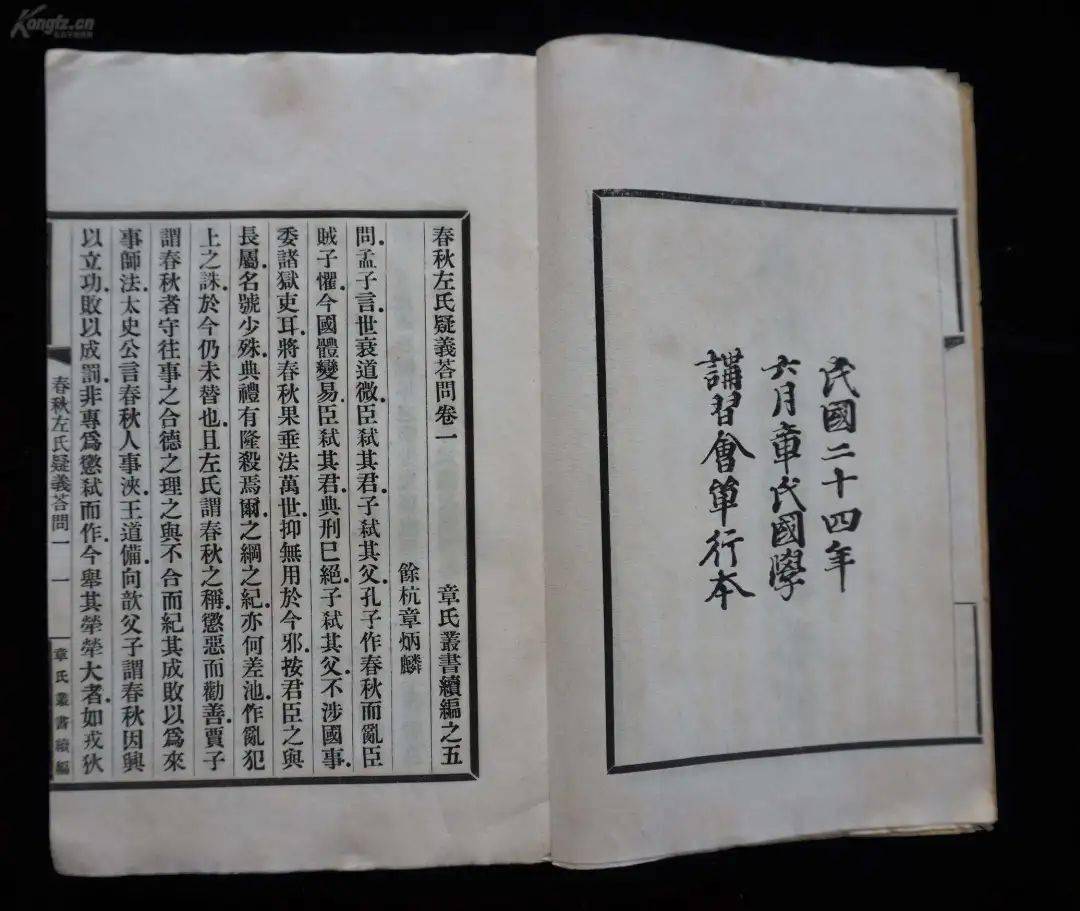 Kongfz.cn
民國二十四年
六月章氏國學
講習會單行本
春秋左氏疑義荅問卷一
章氏叢書續編之五
餘杭章炳麟
問.孟子言.世衰道微.臣弒其君.子弒其父.孔子作春秋而亂臣
賊子懼.今國體變易.臣弒其君.典刑巳絕.子弒其父.不涉國事.
委諸獄吏耳.將春秋果垂法萬世.抑無用於今邪.按君臣之與
長屬.名號少殊.典禮有隆殺焉.爾之綱之紀.亦何差池.作亂犯
上之誅.於今仍未替也.且左氏謂春秋之稱.懲惡而勸善.賈子
謂春秋者守往事之合德之理之與不合而紀其成敗以爲來
事師法.太史公言春秋人事浹.王道備.向歆父子謂春秋因興
以立功.敗以成罰.非專爲懲弒而作.今舉其犖犖大者.如戎狄
春秋左氏疑義荅問一
一
章氏叢書續編